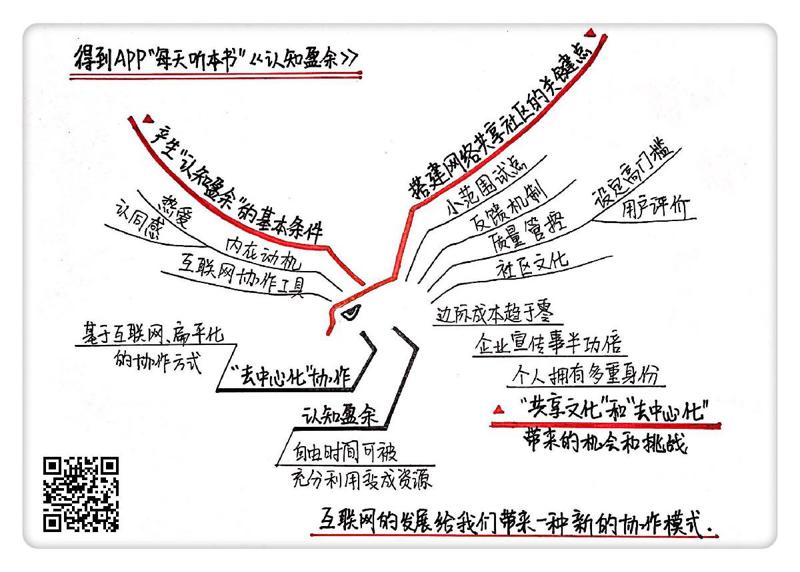 得到APP"每天听本书"《认知盈余》
产生"认知盈余"的基本条件
热爱
认同感
内在动机
互联网协作工具
搭建网络共享社区的关键点
小范围试点
反馈机制
质量管控
设定高门槛
用户评价
社区文化
基于互联网、扁平化
的协作方式
"去中心化"协作
认知盈余
自由时间可被
充分利用变成资源
边际成本趋于零
企业宣传事半功倍
个人拥有多重身份
"共享文化"和"去中心化"
带来的机会和挑战
互联网的发展给我们带来一种新的协作模式.